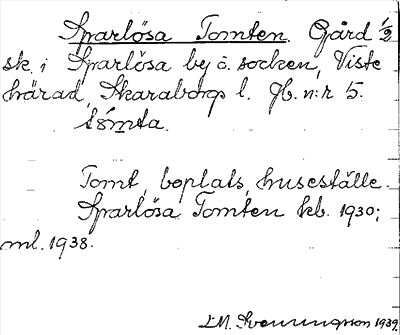 Sparlösa Tomten. Gård 1/2
sk. i Sparlösa by o. socken, Viste
härad, Skaraborgs l. Jb. n:r 5.
tómta.
Tomt, boplats, huseställe.
Sparlösa Tomten kb. 1930;
ml. 1938.
L.M. Svenningsson 1939.